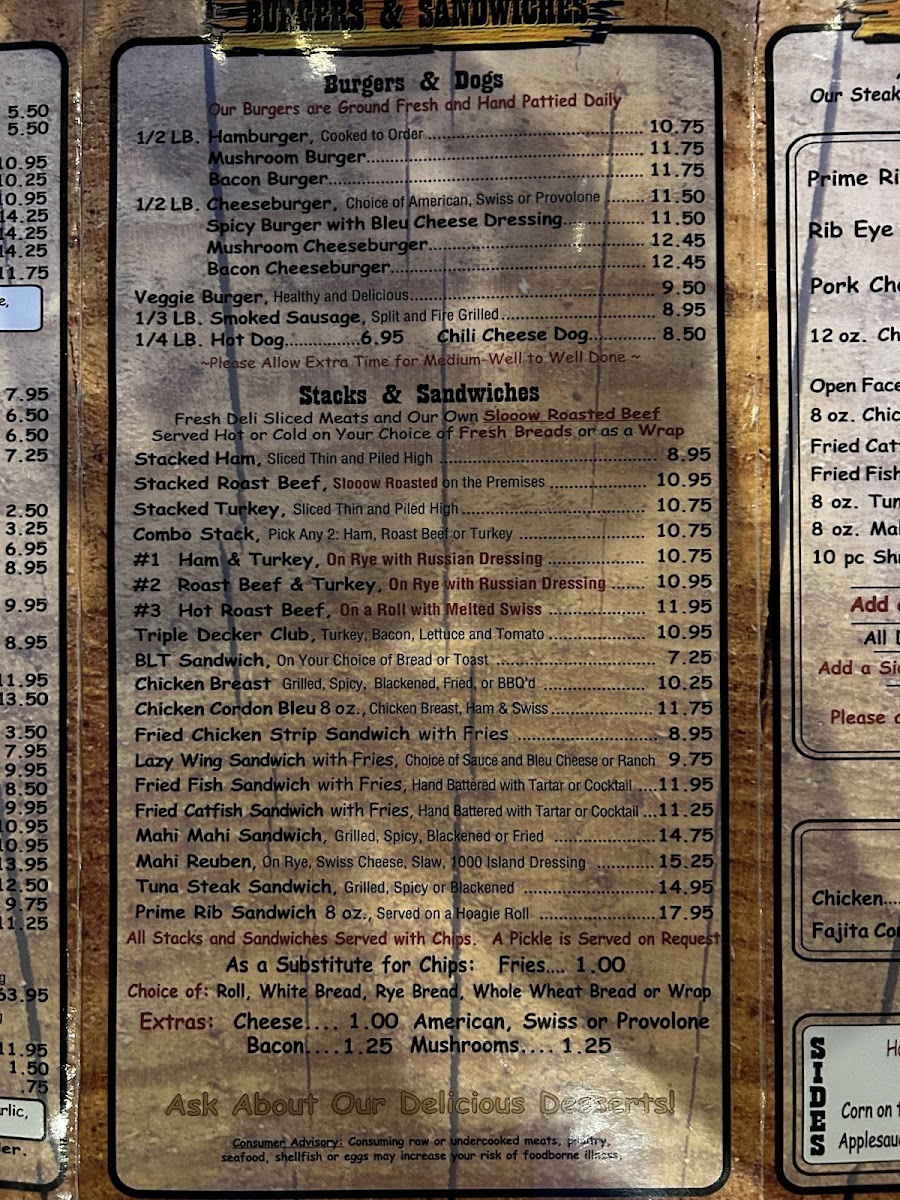 BURGERS & SANDWICHES
5.50
5.50
10.95
10.25
10.95
14.25
14.25
14.25
11.75
7.95
6.50
6.50
7.25
2.50
3.25
6.95
8.95
9.95
8.95
11.95
13.50
3.50
7.95
9.95
8.50
9.95
10.95
10.95
13.95
12.50
9.75
11.25
63.95
11.95
1.50
.75
Burgers & Dogs
Our Burgers are Ground Fresh and Hand Pattied Daily
1/2 LB. Hamburger, Cooked to Order ........ 10.75
Mushroom Burger........ 11.75
Bacon Burger........ 11.75
1/2 LB. Cheeseburger, Choice of American, Swiss or Provolone ........ 11.50
Spicy Burger with Bleu Cheese Dressing........ 11.50
Mushroom Cheeseburger........ 12.45
Bacon Cheeseburger........ 12.45
Veggie Burger, Healthy and Delicious........ 9.50
1/3 LB. Smoked Sausage, Split and Fire Grilled........ 8.95
1/4 LB. Hot Dog........6.95 Chili Cheese Dog........ 8.50
~Please Allow Extra Time for Medium-Well to Well Done ~
Stacks & Sandwiches
Fresh Deli Sliced Meats and Our Own Slooow Roasted Beef
Served Hot or Cold on Your Choice of Fresh Breads or as a Wrap
Stacked Ham, Sliced Thin and Piled High ........ 8.95
Stacked Roast Beef, Slooow Roasted on the Premises ........ 10.95
Stacked Turkey, Sliced Thin and Piled High ........ 10.75
Combo Stack, Pick Any 2: Ham, Roast Beef or Turkey ........ 10.75
#1 Ham & Turkey, On Rye with Russian Dressing ........ 10.75
#2 Roast Beef & Turkey, On Rye with Russian Dressing ...... 10.95
#3 Hot Roast Beef, On a Roll with Melted Swiss ........ 11.95
Triple Decker Club, Turkey, Bacon, Lettuce and Tomato ........ 10.95
BLT Sandwich, On Your Choice of Bread or Toast ........ 7.25
Chicken Breast Grilled, Spicy, Blackened, Fried, or BBQ'd ........ 10.25
Chicken Cordon Bleu 8 oz., Chicken Breast, Ham & Swiss........ 11.75
Fried Chicken Strip Sandwich with Fries ........ 8.95
Lazy Wing Sandwich with Fries, Choice of Sauce and Bleu Cheese or Ranch 9.75
Fried Fish Sandwich with Fries, Hand Battered with Tartar or Cocktail ....11.95
Fried Catfish Sandwich with Fries, Hand Battered with Tartar or Cocktail ...11.25
Mahi Mahi Sandwich, Grilled, Spicy, Blackened or Fried ........ 14.75
Mahi Reuben, On Rye, Swiss Cheese, Slaw, 1000 Island Dressing ........ 15.25
Tuna Steak Sandwich, Grilled, Spicy or Blackened ........ 14.95
Prime Rib Sandwich 8 oz., Served on a Hoagie Roll ........ 17.95
All Stacks and Sandwiches Served with Chips. A Pickle is Served on Request
As a Substitute for Chips: Fries.... 1.00
Choice of: Roll, White Bread, Rye Bread, Whole Wheat Bread or Wrap
Extras: Cheese.... 1.00 American, Swiss or Provolone
Bacon....1.25 Mushrooms.... 1.25
Ask About Our Delicious Desserts!
Consumer Advisory: Consuming raw or undercooked meats, poultry,
seafood, shellfish or eggs may increase your risk of foodborne illness.
Our Steak
Prime Ri
Rib Eye
Pork Cho
12 oz. Ch
Open Face
8 oz. Chic
Fried Catf
Fried Fish
8 oz. Tun
8 oz. Mah
10 pc Shr
Add a
All D
Add a Sid
Please a
Chicken....
Fajita Co
SIDES
Corn on t
Applesau